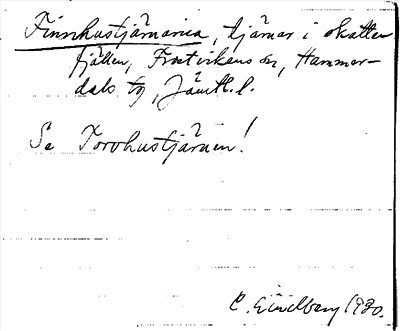 Finnhustjärnarna, tjärnar i skatte
fjällen, Frostvikens sn, Hammer-
dals tg, Jämtl. l.
Se Torvhustjärnen!
C. Lindberg 1930.